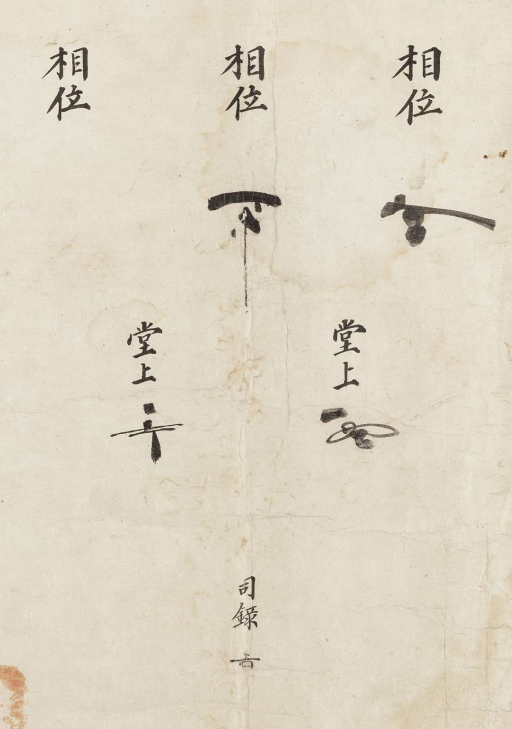 相位
相位
相位
堂上
堂上
司錄